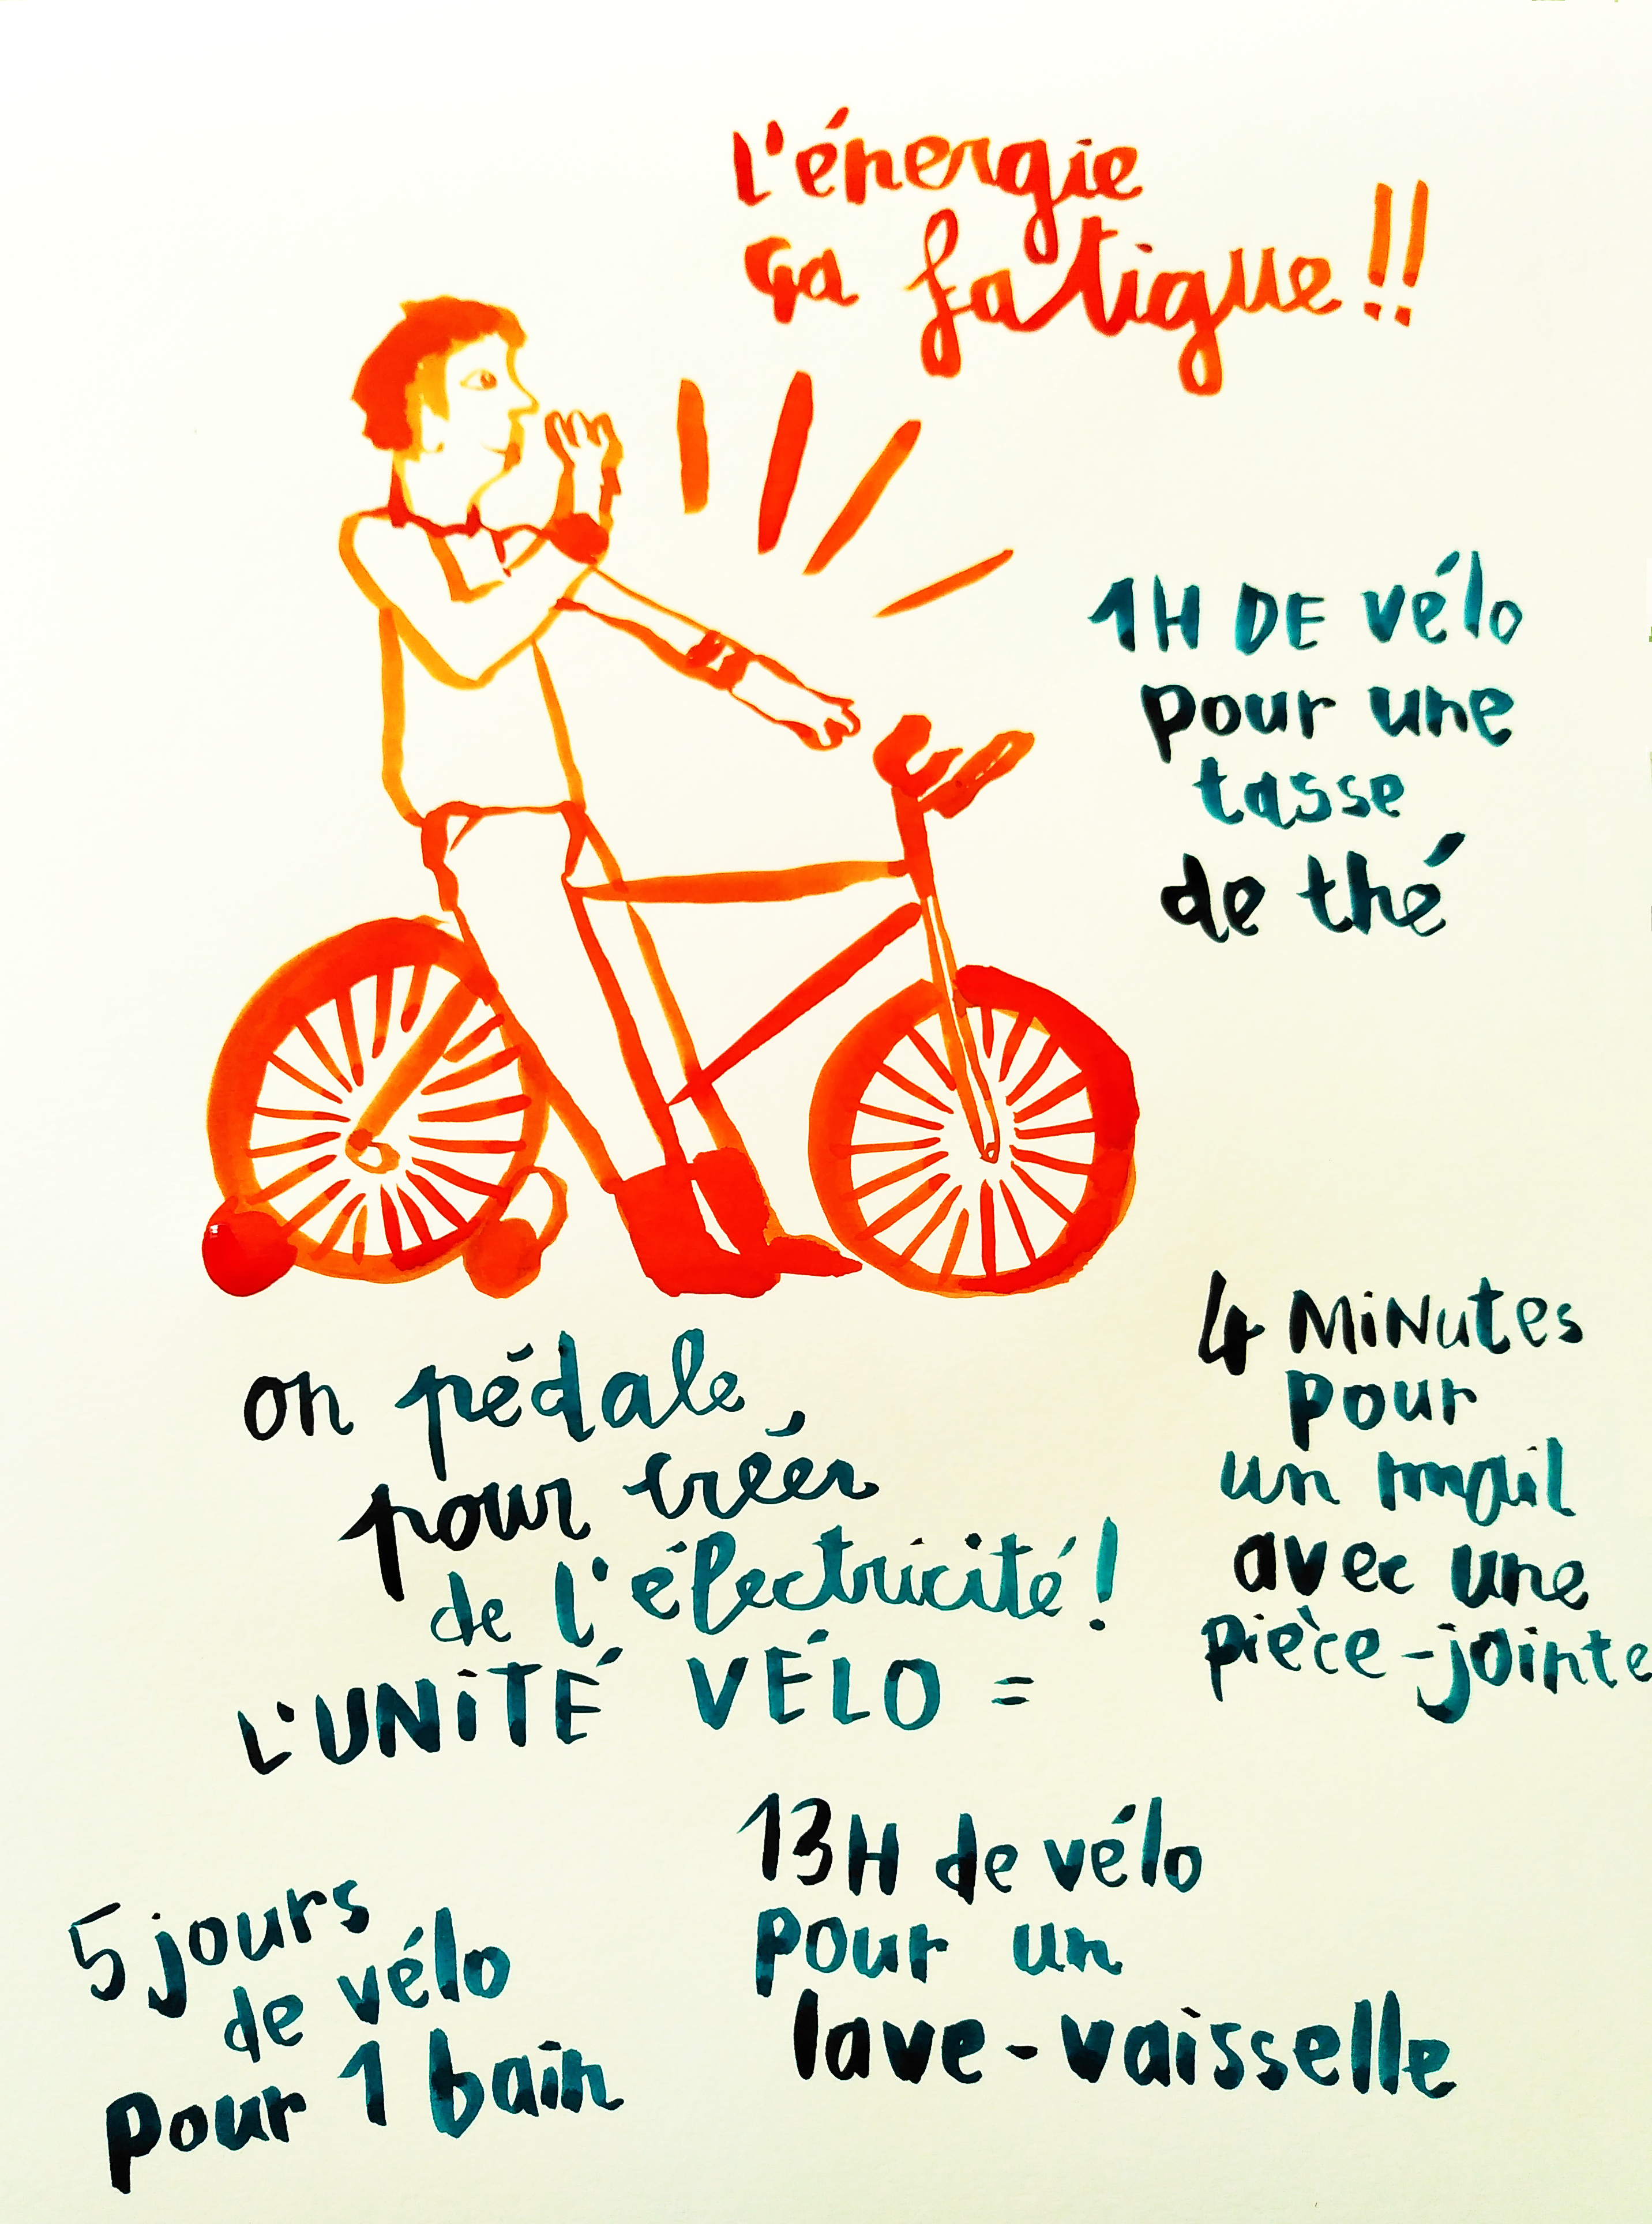 L'énergie
ça fatigue!!
1H DE vélo
pour une
tasse
de thé
on pédale,
pour créer
de l'électricité!
L'UNITÉ VÉLO =
4 MiNutes
pour
un mail
avec une
pièce-jointe
13H de vélo
pour un
lave-vaisselle
5 jours
de vélo
pour 1 bain